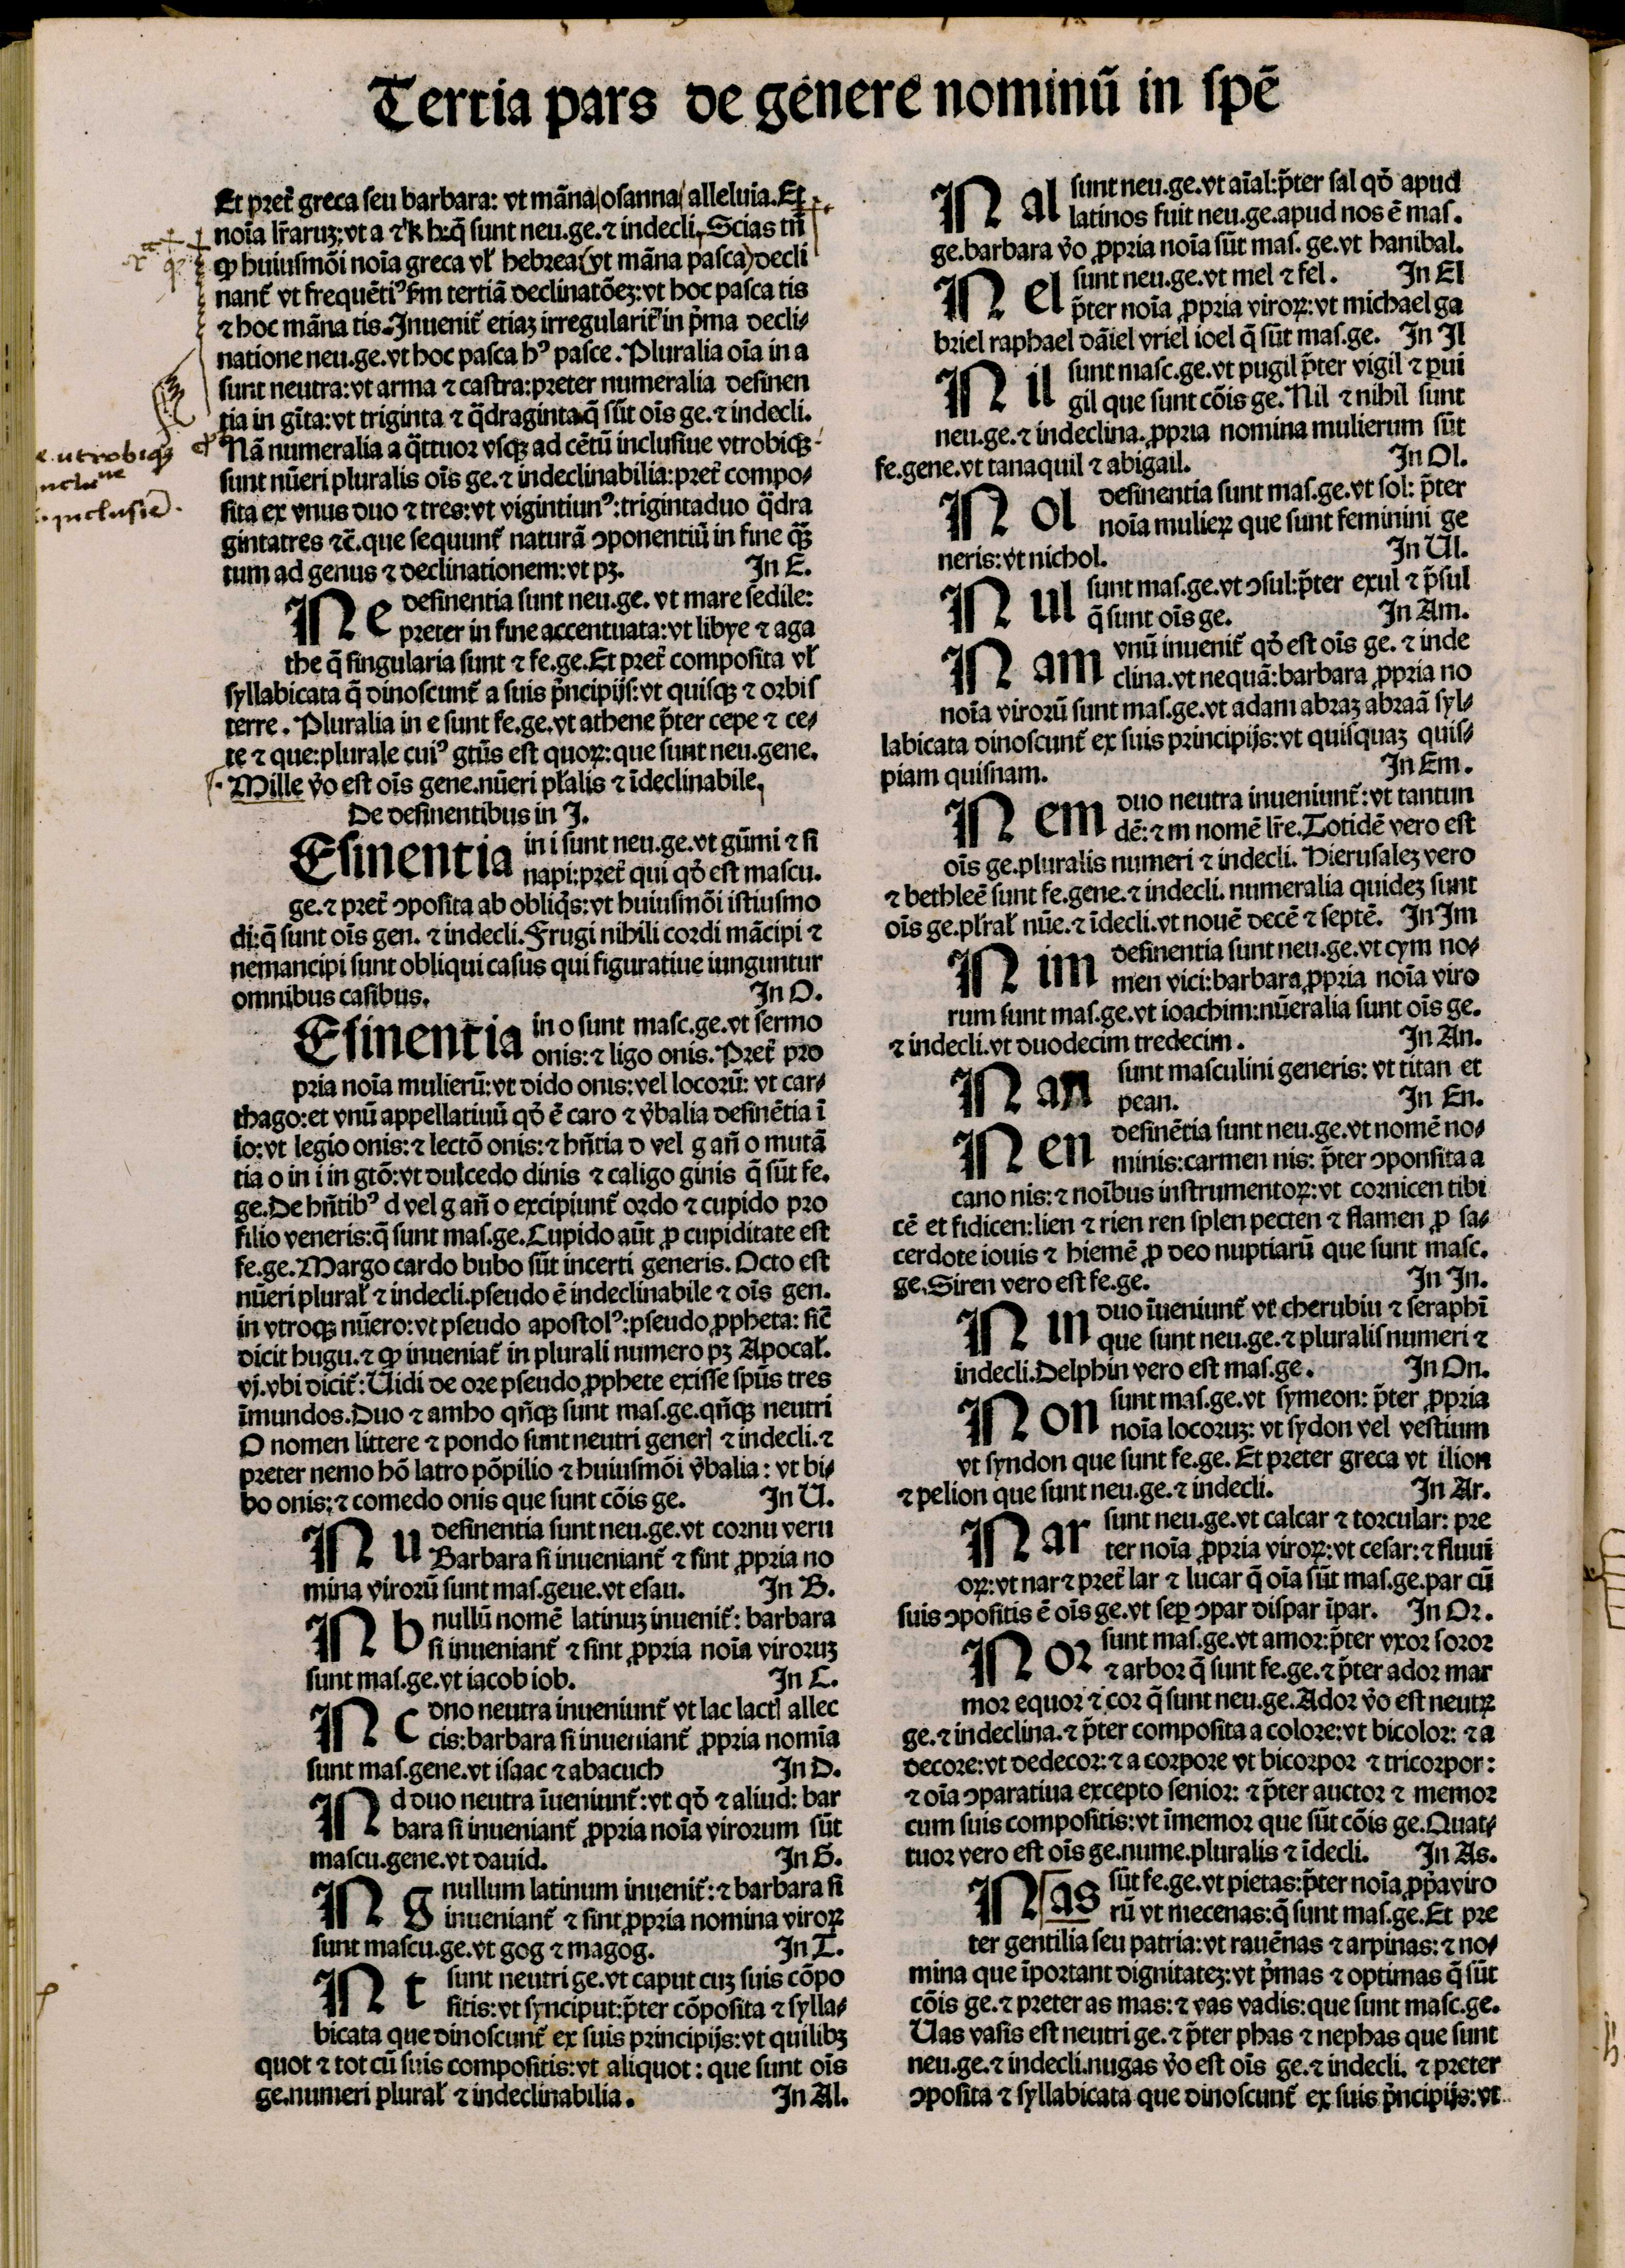 Tertia pars de genere nominū in ſpē
Et pret̄ greca ſeu barbara: vt māna oſanna alleluia. Et
noīa lr̄aruꝫ: vt a ⁊ k h: q̄ ſunt neu.ge.⁊ indecli. Scias tn̄
ꝙ huiuſmōi noīa greca vl̄ hebrea (vt māna paſca) decli
nant̄ vt frequētiꝰ ẜm tertiā declinatōeꝫ: vt hoc paſca tis
⁊ hoc māna tis. Inuenit̄ etiaꝫ irregularit̄ in p̄ma decli-
natione neu.ge.vt hoc paſca hꝰ paſce. Pluralia oīa in a
ſunt neutra: vt arma ⁊ caſtra: preter numeralia deſinen
tia in gīta: vt triginta ⁊ q̄draginta q̄ ſūt oīs ge.⁊ indecli.
Nā numeralia a q̄ttuor vſqꝫ ad cētū incluſiue vtrobiqꝫ
ſunt nūeri pluralis oīs ge.⁊ indeclinabilia: pret̄ compo-
ſita ex vnus duo ⁊ tres: vt vigintiunꝰ: trigintaduo q̄dra
gintatres ⁊c̄.que ſequunt̄ naturā ɔponentiū in fine q̄ꝫ
tum ad genus ⁊ declinationem: vt pꝫ. In E.
IN e deſinentia ſunt neu.ge. vt mare ſedile:
preter in fine accentuata: vt libye ⁊ aga
the q̄ ſingularia ſunt ⁊ fe.ge. Et pret̄ compoſita vl̄
syllabicata q̄ dinoſcunt̄ a ſuis p̄ncipijs: vt quiſqꝫ ⁊ orbiſ
terre. Pluralia in e ſunt fe.ge.vt athene p̄ter cepe ⁊ ce-
te ⁊ que: plurale cuiꝰ gtūs eſt quoꝝ: que ſunt neu.gene.
Mille v̄o eſt oīs gene.nūeri pl̄alis ⁊ īdeclinabile.
De deſinentibus in I.
Eſinentia in i ſunt neu.ge.vt gūmi ⁊ ſi
napi: pret̄ qui qd̄ eſt maſcu.
ge.⁊ pret̄ ɔpoſita ab obliq̄s: vt huiuſmōi iſtiuſmo
di: q̄ ſunt oīs gen. ⁊ indecli. Frugi nihili cordi mācipi ⁊
nemancipi ſunt obliqui caſus qui figuratiue iunguntur
omnibus caſibus. In O.
Eſinentia in o ſunt maſc.ge.vt ſermo
onis: ⁊ ligo onis. Pret̄ pro
pria noīa mulierū: vt dido onis: vel locorū: vt car-
thago: et vnū appellatiuū qd̄ ē caro ⁊ v̄balia deſinētia ī
io: vt legio onis: ⁊ lectō onis: ⁊ hn̄tia d vel g an̄ o mutā
tia o in i in gtō: vt dulcedo dinis ⁊ caligo ginis q̄ ſūt fe.
ge. De hn̄tibꝰ d vel g an̄ o excipiunt̄ ordo ⁊ cupido pro
filio veneris: q̄ ſunt maſ.ge. Cupido aūt ꝓ cupiditate eſt
fe.ge. Margo cardo bubo ſūt incerti generis. Octo eſt
nūeri plural̄ ⁊ indecli.pſeudo ē indeclinabile ⁊ oīs gen.
in vtroqꝫ nūero: vt pſeudo apoſtolꝰ: pſeudo ꝓpheta: ſic̄
dicit hugu.⁊ ꝙ inueniat̄ in plurali numero pꝫ Apocal̄.
vj.vbi dicit̄: Uidi de ore pſeudo ꝓphete exiſſe ſpūs tres
īmundos. Duo ⁊ ambo qn̄qꝫ ſunt maſ.ge.qn̄qꝫ neutri
O nomen littere ⁊ pondo ſunt neutri generꝭ ⁊ indecli.⁊
preter nemo hō latro pōpilio ⁊ huiuſmōi v̄balia: vt bi-
bo onis: ⁊ comedo onis que ſunt cōis ge. In U.
IN u deſinentia ſunt neu.ge.vt cornu veru
Barbara ſi inueniant̄ ⁊ ſint ꝓpria no
mina virorū ſunt maſ.geue.vt eſau. In B.
IN b nullū nomē latinuꝫ inuenit̄: barbara
ſi inueniant̄ ⁊ ſint ꝓpria noīa viroruꝫ
ſunt maſ.ge.vt iacob iob. In C.
IN c dno neutra inueniunt̄ vt lac lactꝭ allec
cis: barbara ſi inueniant̄ ꝓpria nomīa
ſunt maſ.gene.vt iſaac ⁊ abacuch In D.
IN d duo neutra īueniunt̄: vt qd̄ ⁊ aliud: bar
bara ſi inueniant̄ ꝓpria noīa virorum ſūt
maſcu.gene.vt dauid. In G.
IN g nullum latinum inuenit̄: ⁊ barbara ſi
inueniant̄ ⁊ ſint ꝓpria nomina viroꝝ
ſunt maſcu.ge.vt gog ⁊ magog. In T.
IN t ſunt neutri ge.vt caput cuꝫ ſuis cōpo
ſitis: vt ſynciput: p̄ter cōpoſita ⁊ ſylla-
bicata que dinoſcunt̄ ex ſuis principijs: vt quilibꝫ
quot ⁊ tot cū ſuis compoſitis: vt aliquot: que ſunt oīs
ge.numeri plural̄ ⁊ indeclinabilia. In Al.
IN al ſunt neu.ge.vt aīal: p̄ter ſal qd̄ apud
latinos fuit neu.ge.apud nos ē maſ.
ge.barbara v̄o ꝓpria noīa ſūt maſ. ge.vt hanibal.
IN el ſunt neu.ge.vt mel ⁊ fel. In El
p̄ter noīa ꝓpria viroꝝ: vt michael ga
briel raphael dāiel vriel ioel q̄ ſūt maſ.ge. In Il
IN il ſunt maſc.ge.vt pugil p̄ter vigil ⁊ ꝑui
gil que ſunt cōis ge. Nil ⁊ nihil ſunt
neu.ge.⁊ indeclina. ꝓpria nomina mulierum ſūt
fe.gene.vt tanaquil ⁊ abigail. In Ol.
IN ol deſinentia ſunt maſ.ge.vt ſol: p̄ter
noīa mulieꝝ que ſunt feminini ge
neris: vt nichol. In Ul.
IN ul ſunt maſ.ge.vt ɔſul: p̄ter exul ⁊ p̄ſul
q̄ ſunt oīs ge. In Am.
IN am vnū inuenit̄ qd̄ eſt oīs ge. ⁊ inde
clina.vt nequā: barbara ꝓpria no
noīa virorū ſunt maſ.ge.vt adam abraꝫ abraā ſyl-
labicata dinoſcunt̄ ex ſuis principijs: vt quiſquaꝫ quiſ-
piam quiſnam. In Em.
IN em duo neutra inueniunt̄: vt tantun
dē: ⁊ m nomē lr̄e. Totidē vero eſt
oīs ge.pluralis numeri ⁊ indecli. Hieruſaleꝫ vero
⁊ bethleē ſunt fe.gene.⁊ indecli. numeralia quideꝫ ſunt
oīs ge.pl̄ral̄ nūe.⁊ īdecli.vt nouē decē ⁊ ſeptē. In Im
IN im deſinentia ſunt neu.ge.vt cym no-
men vici: barbara ꝓpria noīa viro
rum ſunt maſ.ge.vt ioachim: nūeralia ſunt oīs ge.
⁊ indecli.vt duodecim tredecim. In An.
IN an ſunt maſculini generis: vt titan et
pean. In En.
IN en deſinētia ſunt neu.ge.vt nomē no-
minis: carmen nis: p̄ter ɔponſita a
cano nis: ⁊ noībus inſtrumentoꝝ: vt cornicen tibi
cē et fidicen: lien ⁊ rien ren ſplen pecten ⁊ flamen ꝓ ſa-
cerdote iouis ⁊ hiemē ꝓ deo nuptiarū que ſunt maſc.
ge. Siren vero eſt fe.ge. In In.
IN in duo īueniunt̄ vt cherubiu ⁊ ſeraphī
que ſunt neu.ge.⁊ pluraliſ numeri ⁊
indecli. Delphin vero eſt maſ.ge. In On.
IN on ſunt maſ.ge.vt ſymeon: p̄ter ꝓpria
noīa locoruꝫ: vt ſydon vel veſtium
vt ſyndon que ſunt fe.ge. Et preter greca vt ilion
⁊ pelion que ſunt neu.ge.⁊ indecli. In Ar.
IN ar ſunt neu.ge.vt calcar ⁊ torcular: pre
ter noīa ꝓpria viroꝝ: vt ceſar: ⁊ fluuī
oꝝ: vt nar ⁊ pret̄ lar ⁊ lucar q̄ oīa ſūt maſ.ge.par cū
ſuis ɔpoſitis ē oīs ge.vt ſeꝑ ɔpar diſpar īpar. In Or.
IN or ſunt maſ.ge.vt amor: p̄ter vxor ſoror
⁊ arbor q̄ ſunt fe.ge.⁊ p̄ter ador mar
mor equor ⁊ cor q̄ ſunt neu.ge. Ador v̄o eſt neutꝝ
ge.⁊ indeclina.⁊ p̄ter compoſita a colore: vt bicolor: ⁊ a
decore: vt dedecor: ⁊ a corpore vt bicorpor ⁊ tricorpor:
⁊ oīa ɔparatiua excepto ſenior: ⁊ p̄ter auctor ⁊ memor
cum ſuis compoſitis: vt īmemor que ſūt cōis ge. Quat-
tuor vero eſt oīs ge.nume.pluralis ⁊ īdecli. In As.
IN as ſūt fe.ge.vt pietas: p̄ter noīa ꝓp̄a viro
rū vt mecenas: q̄ ſunt maſ.ge. Et pre
ter gentilia ſeu patria: vt rauēnas ⁊ arpinas: ⁊ no-
mina que īportant dignitateꝫ: vt p̄mas ⁊ optimas q̄ ſūt
cōis ge.⁊ preter as mas: ⁊ vas vadis: que ſunt maſc.ge.
Uas vaſis eſt neutri ge.⁊ p̄ter phas ⁊ nephas que ſunt
neu.ge.⁊ indecli.nugas v̄o eſt oīs ge.⁊ indecli. ⁊ preter
ɔpoſita ⁊ ſyllabicata que dinoſcunt̄ ex ſuis p̄ncipijs: vt